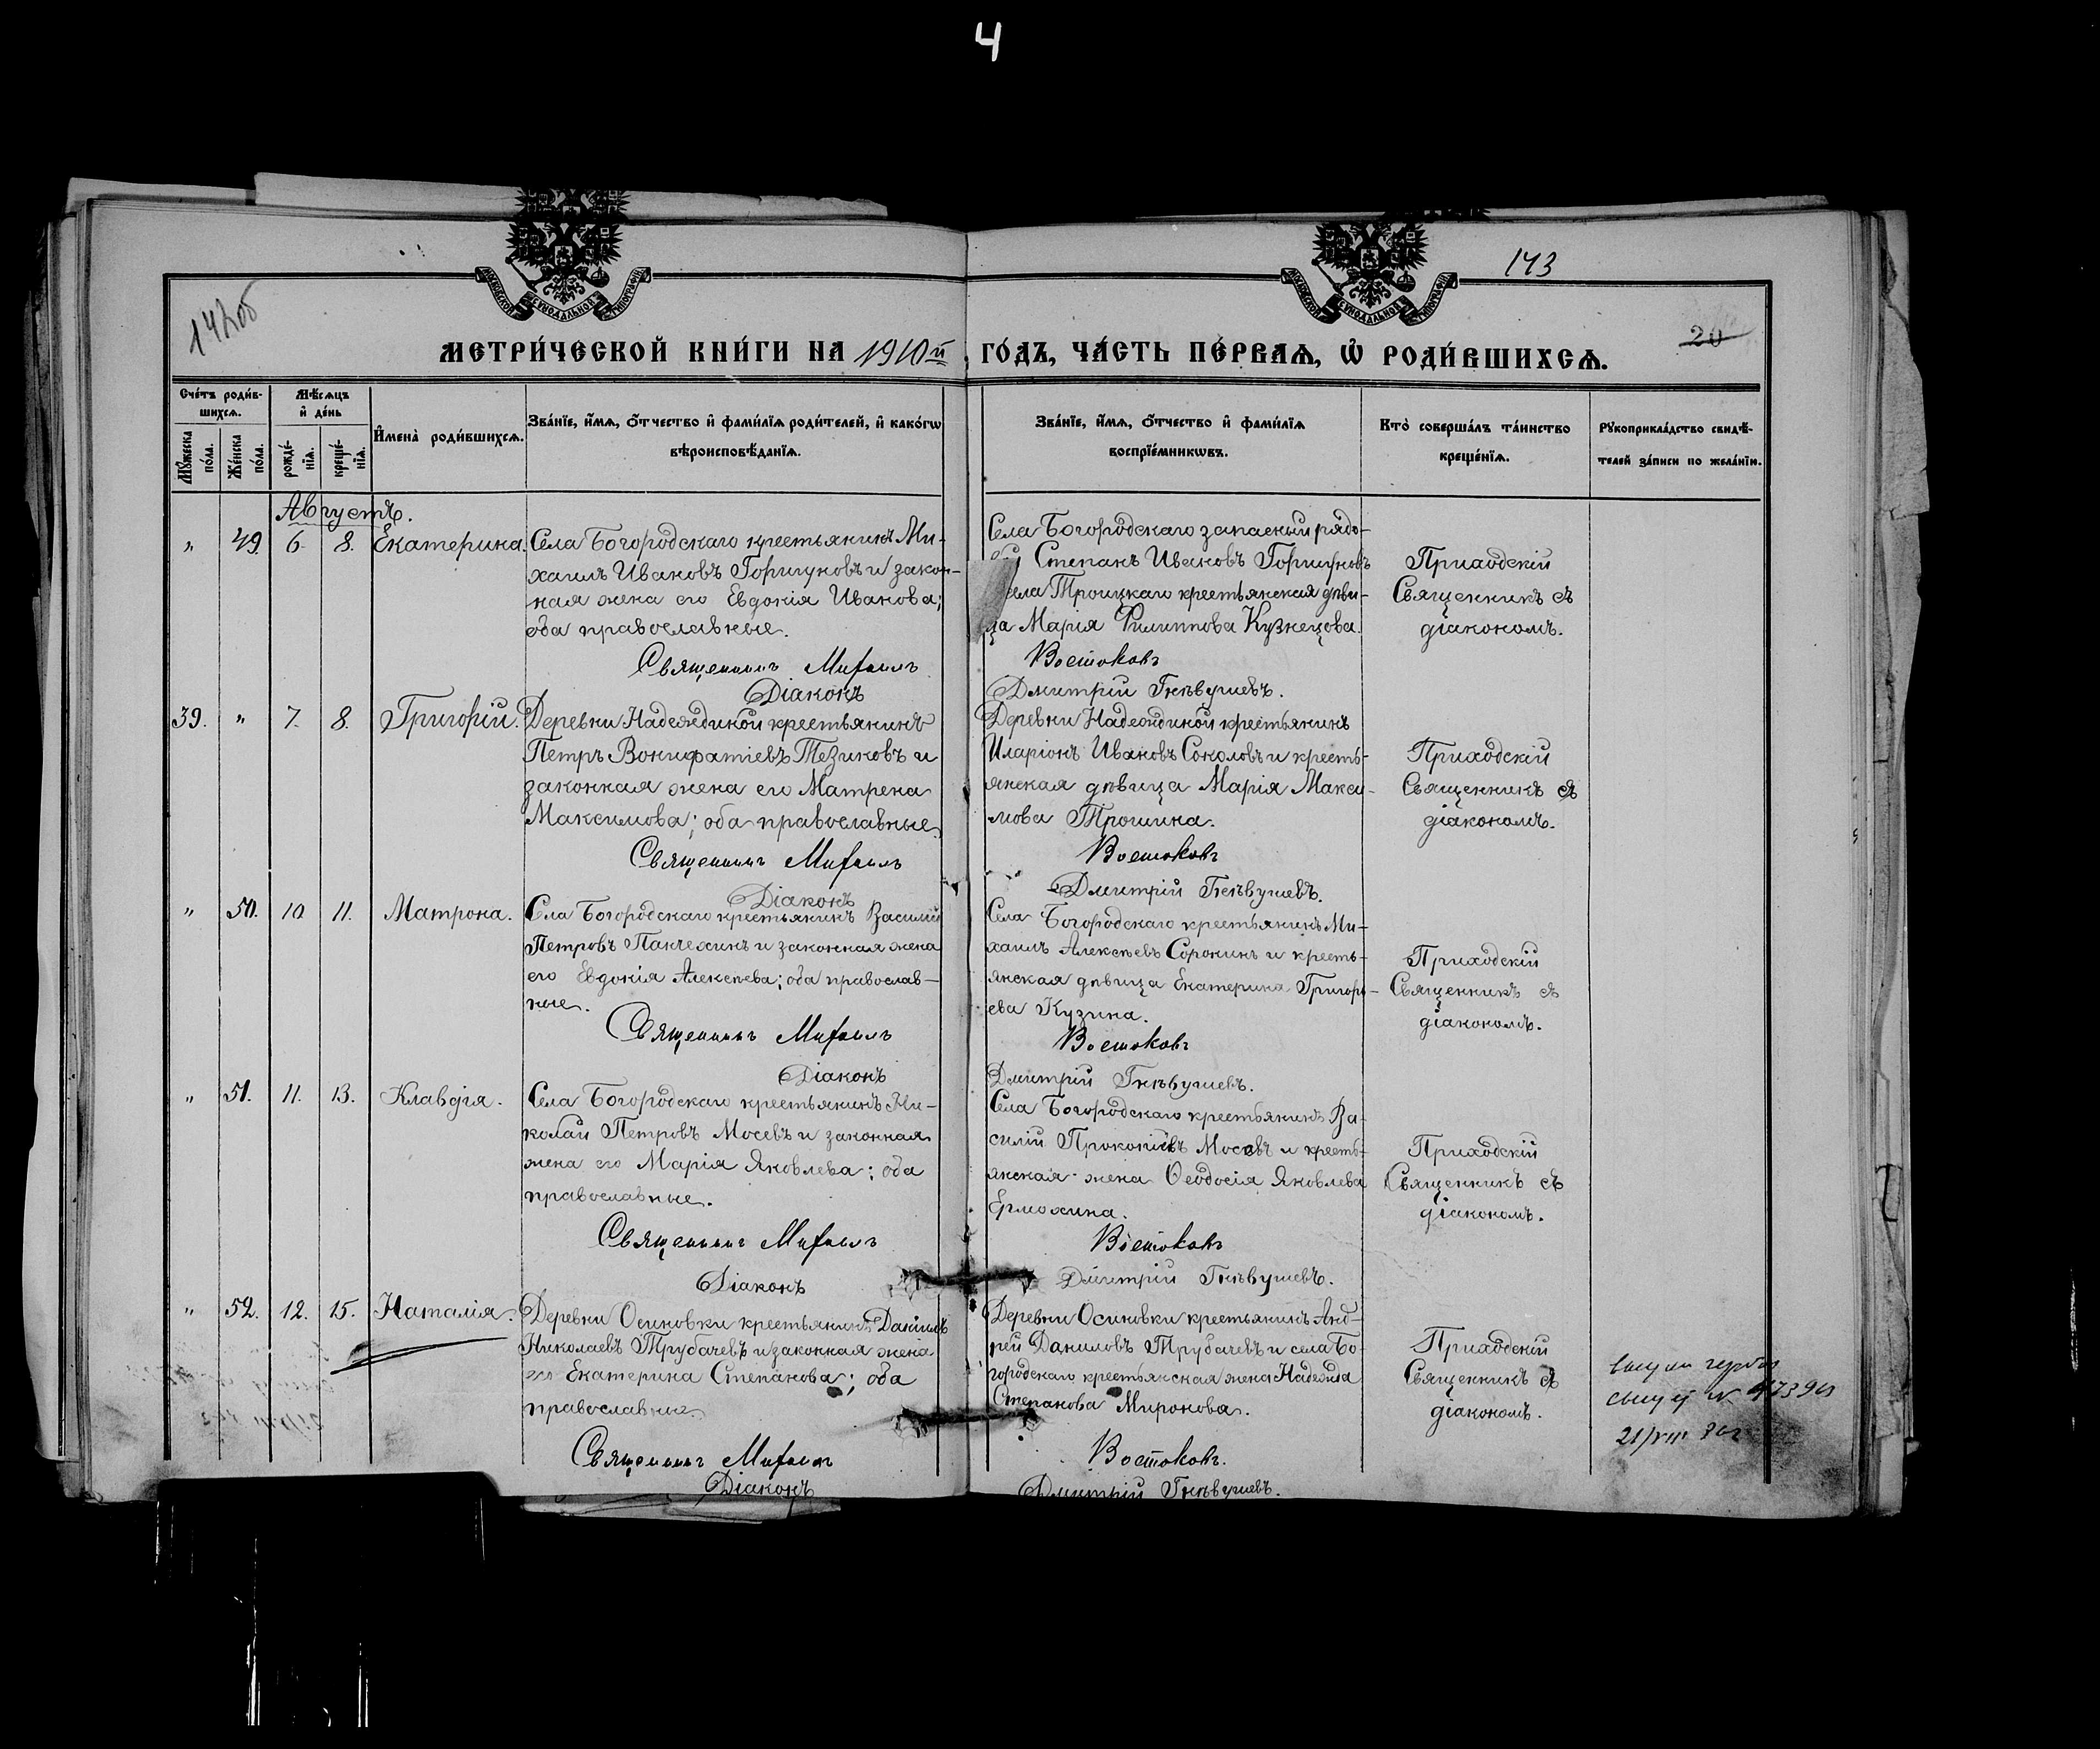 4
МОСКОВСКОЙ СѴНОДАЛЬНОЙ ТИПОГРАФІИ
МОСКОВСКОЙ СѴНОДАЛЬНОЙ ТИПОГРАФІИ
142об
143
20
МЕТРИ́ЧЕСКОЙ КНИ́ГИ НА 1910й
ГО́ДЪ, ЧА́СТЬ ПЕ́РВАѦ, Ѡ҆ РОДИ́ВШИХСѦ.
Сче́тъ роди́в-
шихсѧ.
Мѣ́сѧцъ
и҆ де́нь
Мꙋ́жеска по́ла.
Же́нска по́ла.
рожде́-
нїѧ.
креще́-
нїѧ.
И҆мена̀ роди́вшихсѧ.
Зва́нїе, и҆́мѧ, ѻ҆́тчество и҆ фами́лїѧ роди́телей, и҆ како́гѡ
вѣроисповѣ́данїѧ.
Зва́нїе, и҆́мѧ, ѻ҆́тчество и҆ фами́лїѧ
воспрїе́мникѡвъ.
Кто̀ соверша́лъ та́инство
креще́нїѧ.
Рꙋкоприкла́дство свидѣ́-
телей за́писи по жела́нїю.
Августъ.
" 49. 6. 8. Екатерина.
Села Богородскаго крестьянинъ Ми-
хаилъ Ивановъ Горшуновъ и закон-
ная жена его Евдокія Иванова;
оба православные.
Священникъ Михаилъ
Діаконъ
Села Богородскаго запасный рядо-
Степанъ Ивановъ Горшуновъ
села Троицкаго крестьянская дѣви-
ца Марія Филиппова Кузнецова.
Востоковъ
Дмитрій Гнѣвушевъ.
Приходскій
Священникъ съ
діакономъ.
39. " 7. 8. Григорій.
Деревни Надеждиной крестьянинъ
Петръ Вонифатіевъ Тезиковъ и
законная жена его Матрена
Максимова; оба православные.
Священникъ Михаилъ
Діаконъ
Деревни Надеждиной крестьянинъ
Иларіонъ Ивановъ Соколовъ и кресть-
янская дѣвица Марія Макси-
мова Трошина.
Востоковъ
Дмитрій Гнѣвушевъ.
Приходскій
Священникъ съ
діакономъ.
" 50. 10 11. Матрона.
Села Богородскаго крестьянинъ Василій
Петровъ Панчехинъ и законная жена
его Евдокія Алексѣева; оба православ-
ные.
Священникъ Михаилъ
Діаконъ
Села Богородскаго крестьянинъ Ми-
хаилъ Алексѣевъ Сорокинъ и кресть-
янская дѣвица Екатерина Григорь-
ева Кузина.
Востоковъ
Дмитрій Гнѣвушевъ.
Приходскій
Священникъ съ
діакономъ.
" 51. 11. 13. Клавдія.
Села Богородскаго крестьянинъ Ни-
колай Петровъ Мосевъ и законная
жена его Марія Яковлева; оба
православные.
Священникъ Михаилъ
Діаконъ
Села Богородскаго крестьянинъ Ва-
силій Прокопіевъ Мосевъ и кресть-
янская жена Ѳеодосія Яковлева
Ермохина.
Востоковъ
Дмитрій Гнѣвушевъ.
Приходскій
Священникъ съ
діакономъ.
" 52. 12. 15. Наталія.
Деревни Осиновки крестьянинъ Даніилъ
Николаевъ Трубачевъ и законная жена
его Екатерина Степанова; оба
православные.
Священникъ Михаилъ
Діаконъ
Деревни Осиновки крестьянинъ Анд-
рей Даниловъ Трубачевъ и села Бо-
городскаго крестьянская жена Надежда
Степанова Миронова.
Востоковъ.
Дмитрій Гнѣвушевъ.
Приходскій
Священникъ съ
діакономъ.
21/VIII